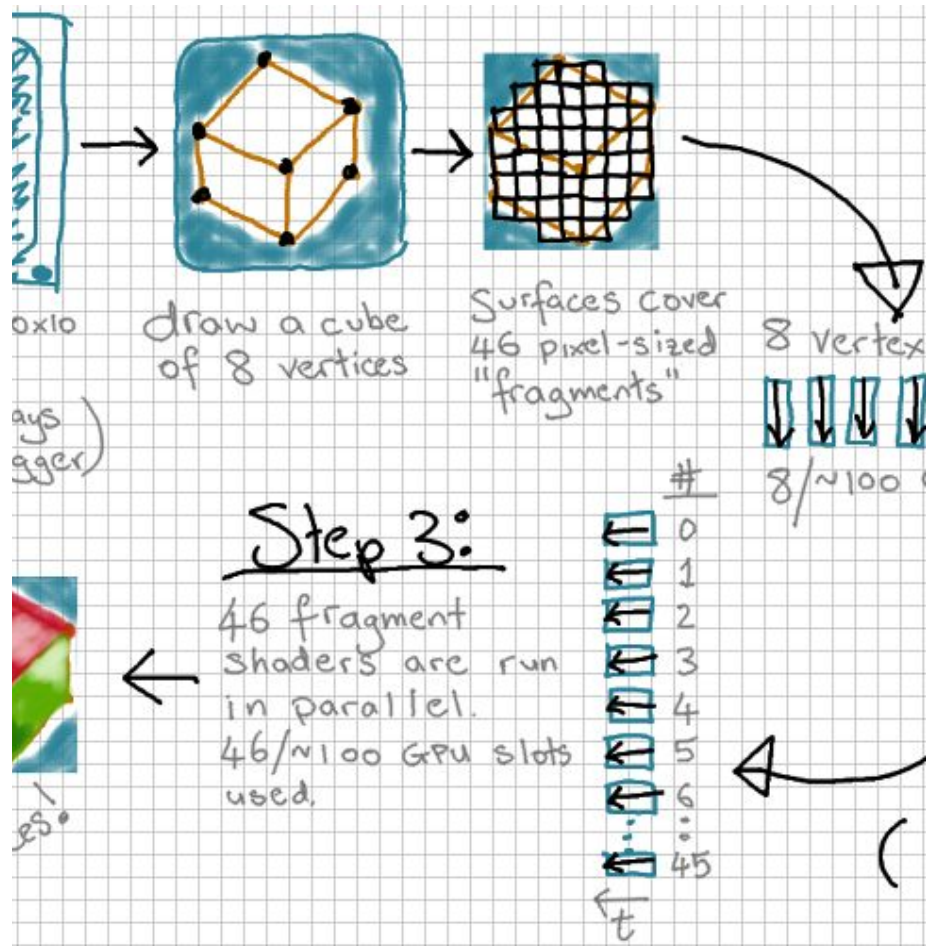 0x10
draw a cube
of 8 vertices
Surfaces cover
46 pixel-sized
"fragments"
8 vertex
8/~100
ays
gger)
Step 3:
46 fragment
shaders are run
in parallel.
46/~100 GPU slots
used.
#
0
1
2
3
4
5
6
:
45
t
es!
(